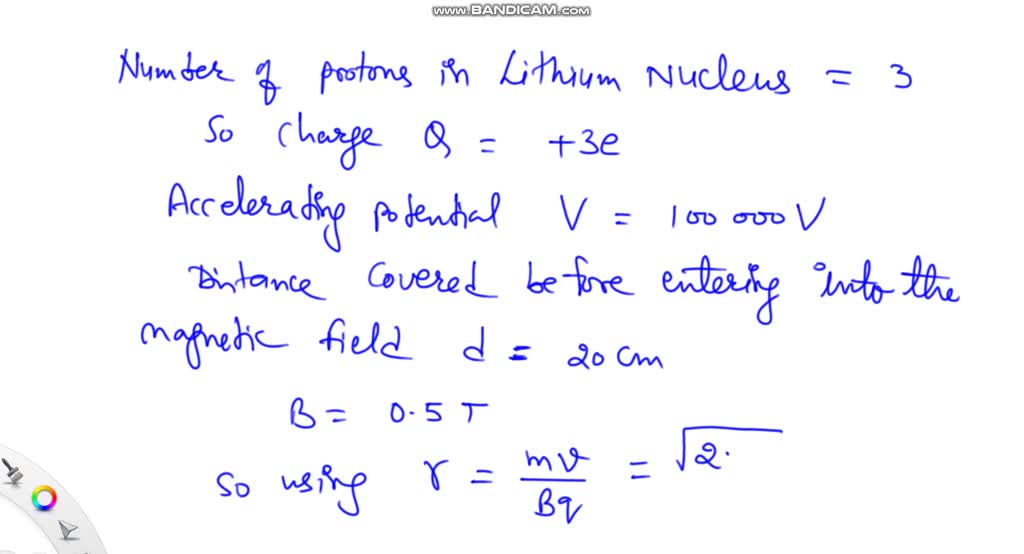 www.BANDICAM.com
Number of protons in Lithium Nucleus = 3
So charge Q = +3e
Accelerating potential V = 100 000 V
Distance covered before entering into the
magnetic field d = 20 cm
B = 0.5 T
So using r = mv/Bq = √2.